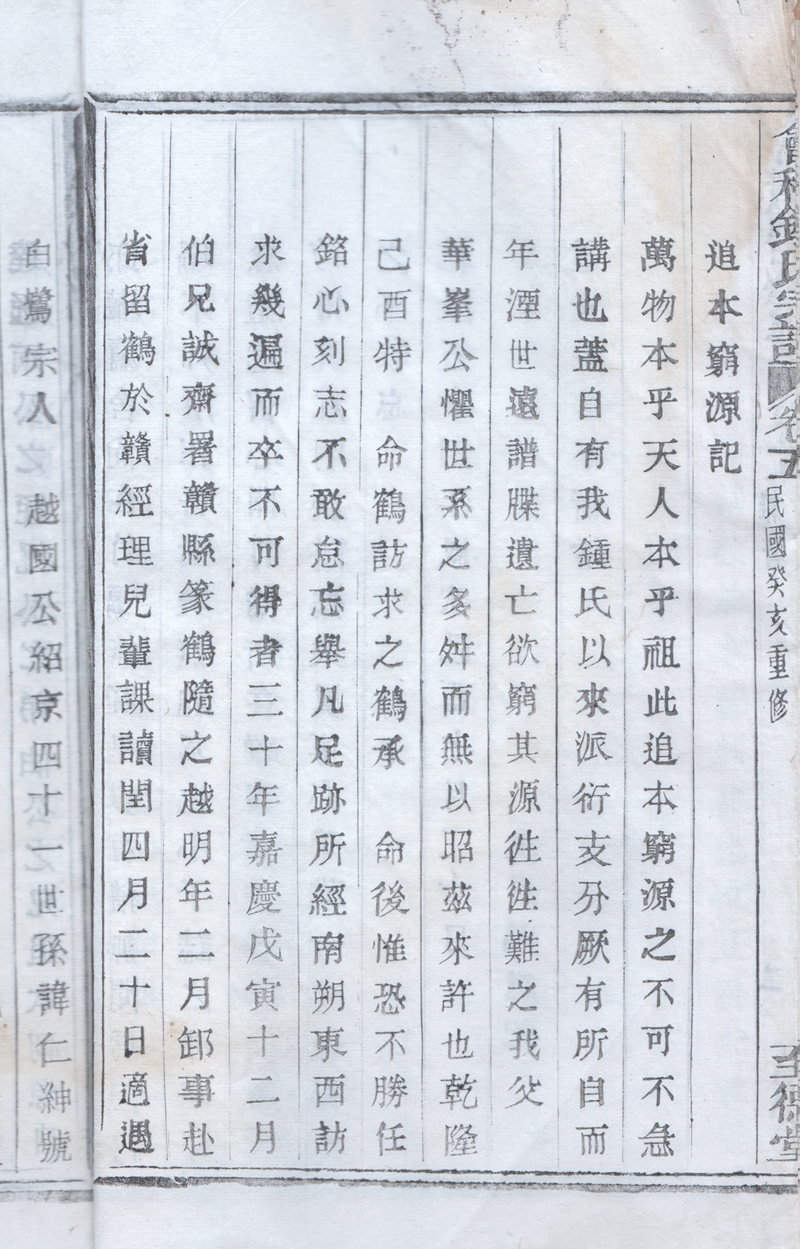 會稽鍾氏宗譜 卷五 民國癸亥重修 至德堂
追本窮源記
萬物本乎天人本乎祖此追本窮源之不可不急
講也蓋自有我鍾氏以來派衍支分厥有所自而
年湮世遠譜牒遺亡欲窮其源徃徃難之我父
華峯公懼世系之多舛而無以昭茲來許也乾隆
己酉特 命鶴訪求之鶴承 命後惟恐不勝任
銘心刻志不敢怠忘舉凡足跡所經南朔東西訪
求幾遍而卒不可得者三十年嘉慶戊寅十二月
伯兄誠齋署贛縣篆鶴隨之越明年二月卸事赴
省留鶴於贛經理兒輩課讀閏四月二十日適遇
白鷺宗人 越國公紹京四十一世孫諱仁紳號